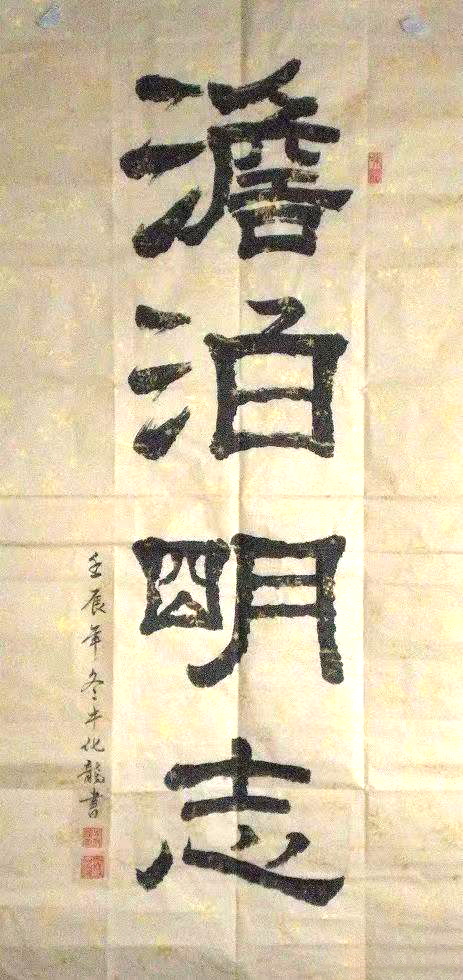 澹泊明志
壬辰年冬牛化龍書